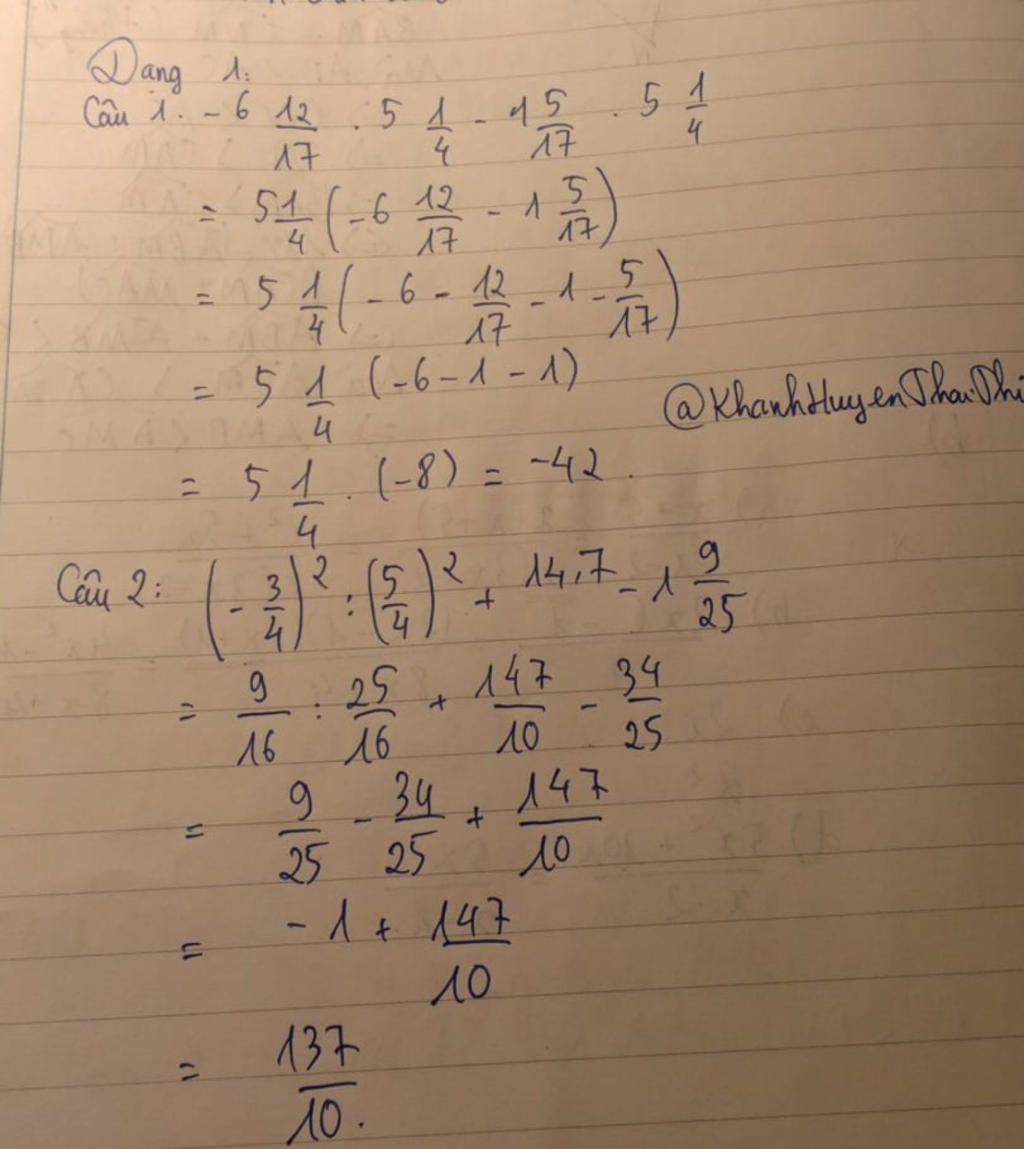 Dạng 1:
Câu 1. - 6 12/17 . 5 1/4 - 1 5/17 . 5 1/4
= 5 1/4 (-6 12/17 - 1 5/17)
= 5 1/4 (-6 - 12/17 - 1 - 5/17)
= 5 1/4 (-6 - 1 - 1)
@KhanhHuyenThaiThi
= 5 1/4 . (-8) = -42.
Câu 2: (-3/4)² : (5/4)² + 14,7 - 1 9/25
= 9/16 : 25/16 + 147/10 - 34/25
= 9/25 - 34/25 + 147/10
= -1 + 147/10
= 137/10.